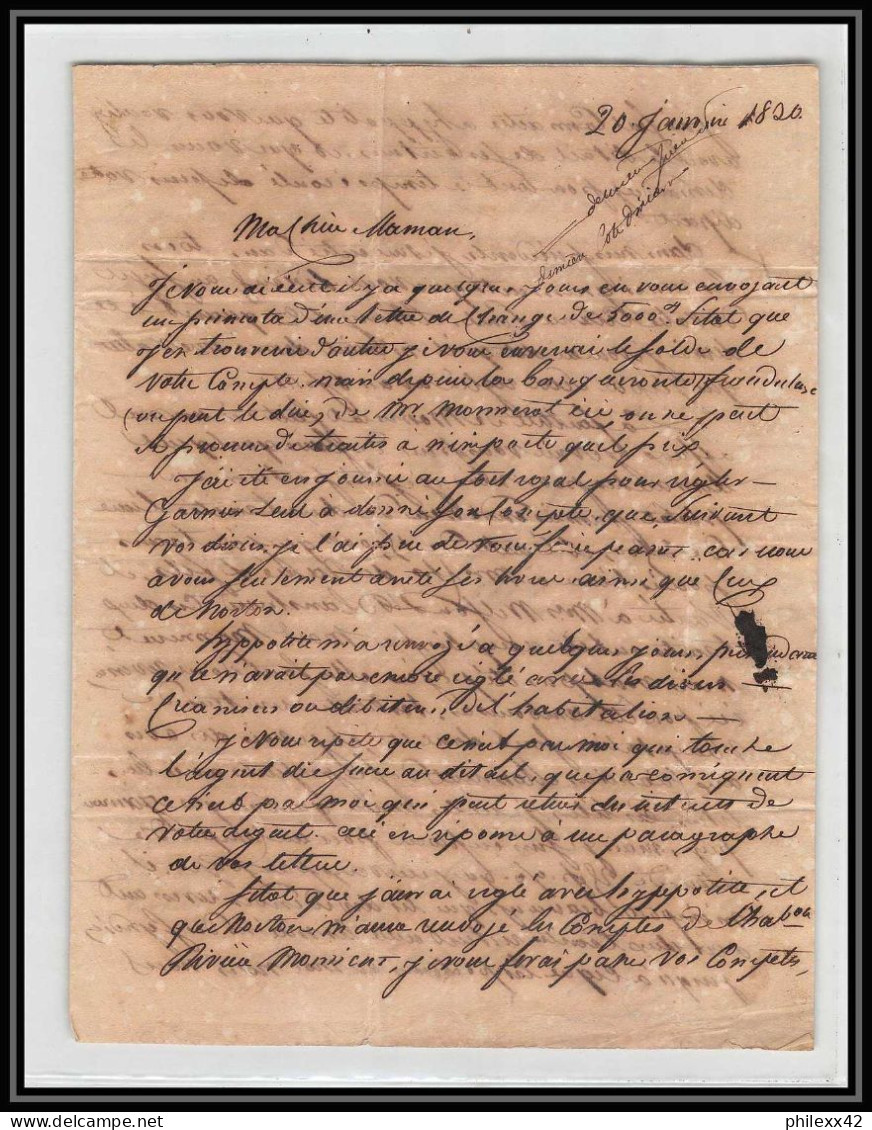 20 Janvier 1820.
Ma Chère Maman,
Je vous ai écrit il y a quelques jours en vous envoyant
un primata d'une lettre de Change de 5000 Sitot que
j'en trouverai d'autre je vous enverrai le solde de
votre Compte. mais depuis la banqueroute frauduleuse
(on peut le dire) de Mr Monnerot ici on ne peut
se procurer de traites a n'importe quel prix.
J'ai été en journée au fort royal pour régler —
Garnier seul a donné son Compte que, suivant
vos désirs, je l'ai de vous faire passer. car nous
avons seulement arrêté ses livres ainsi que Ceux
de Norton.
hyppolite m'a renvoyé a quelques jours,
qu'il n'avait pas encore réglé avec les divers —
Créanciers ou débiteurs de l'habitation —
Je vous répète que ce n'est pas moi qui touche
l'argent du sucre au détail, que par conséquent
ce n'est pas moi qui peut retirer du intérets de
votre argent. ceci en réponse à un paragraphe
de vos lettres.
Sitot que j'aurai réglé avec hyppolite, et
que Norton m'aura envoyé les Comptes de
Rivière Monsieur, je vous ferai passer vos Comptes,
philexx42